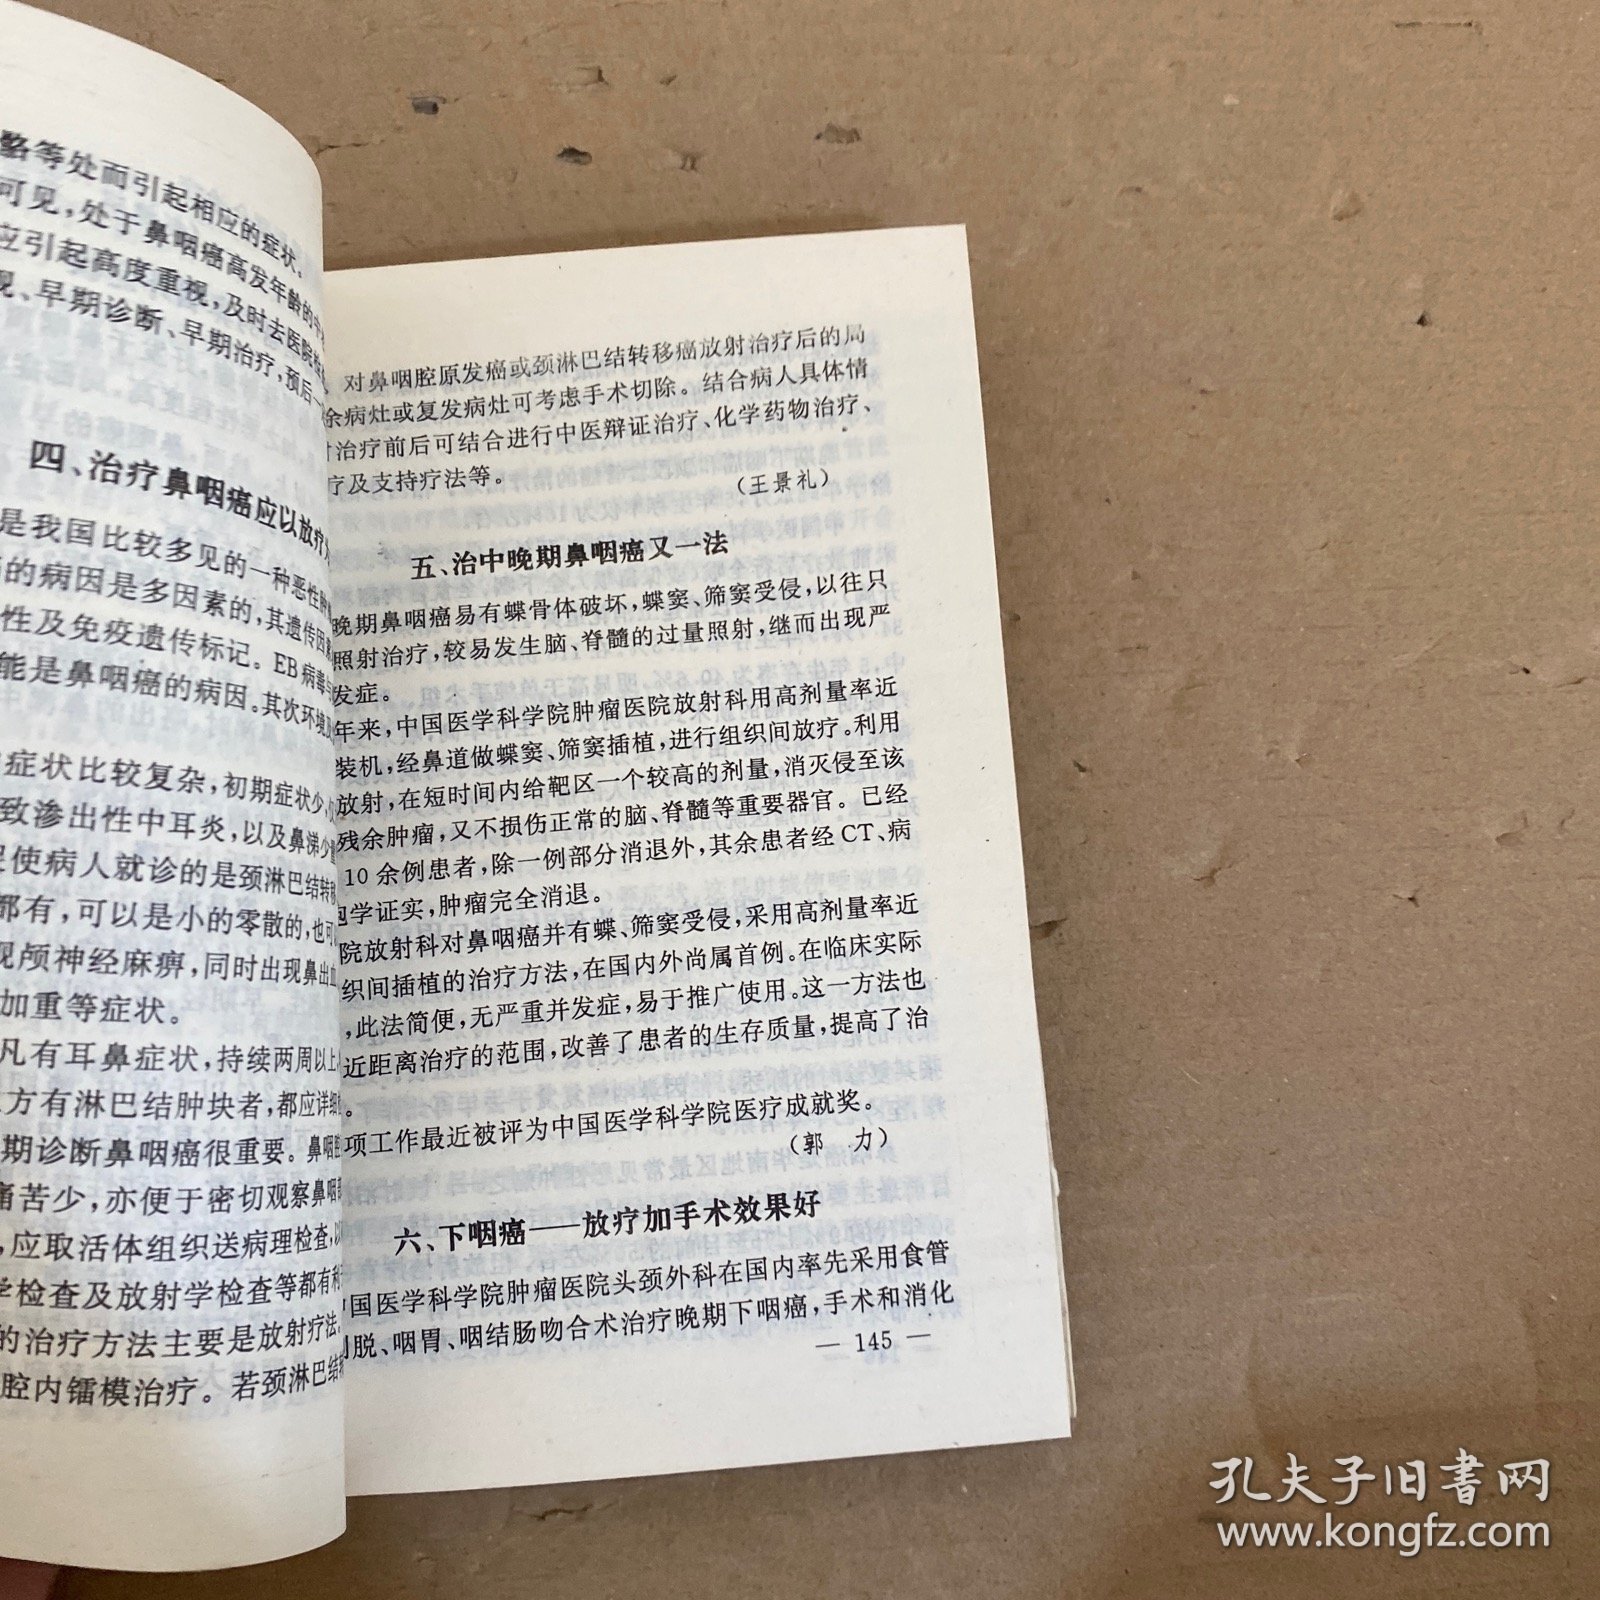 等处而引起相应的症状。
可见，处于鼻咽癌高发年龄的中
应引起高度重视，及时去医院检
现、早期诊断、早期治疗，预后一
四、治疗鼻咽癌应以放疗为
是我国比较多见的一种恶性肿
的病因是多因素的，其遗传因素
性及免疫遗传标记。EB病毒与
能是鼻咽癌的病因。其次环境及
症状比较复杂，初期症状少，仅
致渗出性中耳炎，以及鼻涕少量
促使病人就诊的是颈淋巴结转移
都有，可以是小的零散的，也可
现颅神经麻痹，同时出现鼻出血
加重等症状。
凡有耳鼻症状，持续两周以上
方有淋巴结肿块者，都应详细
期诊断鼻咽癌很重要。鼻咽腔
痛苦少，亦便于密切观察鼻咽部
，应取活体组织送病理检查，以
学检查及放射学检查等都有利
的治疗方法主要是放射疗法。
腔内镭模治疗。若颈淋巴结转
对鼻咽腔原发癌或颈淋巴结转移癌放射治疗后的局
余病灶或复发病灶可考虑手术切除。结合病人具体情
治疗前后可结合进行中医辩证治疗、化学药物治疗、
疗及支持疗法等。
（王景礼）
五、治中晚期鼻咽癌又一法
晚期鼻咽癌易有蝶骨体破坏，蝶窦、筛窦受侵，以往只
照射治疗，较易发生脑、脊髓的过量照射，继而出现严
发症。
年来，中国医学科学院肿瘤医院放射科用高剂量率近
装机，经鼻道做蝶窦、筛窦插植，进行组织间放疗。利用
放射，在短时间内给靶区一个较高的剂量，消灭侵至该
残余肿瘤，又不损伤正常的脑、脊髓等重要器官。已经
10余例患者，除一例部分消退外，其余患者经CT、病
学证实，肿瘤完全消退。
院放射科对鼻咽癌并有蝶、筛窦受侵，采用高剂量率近
织间插植的治疗方法，在国内外尚属首例。在临床实际
，此法简便，无严重并发症，易于推广使用。这一方法也
近距离治疗的范围，改善了患者的生存质量，提高了治
。
项工作最近被评为中国医学科学院医疗成就奖。
（郭　力）
六、下咽癌——放疗加手术效果好
中国医学科学院肿瘤医院头颈外科在国内率先采用食管
剥脱、咽胃、咽结肠吻合术治疗晚期下咽癌，手术和消化
— 145 —
孔夫子旧书网
www.kongfz.com